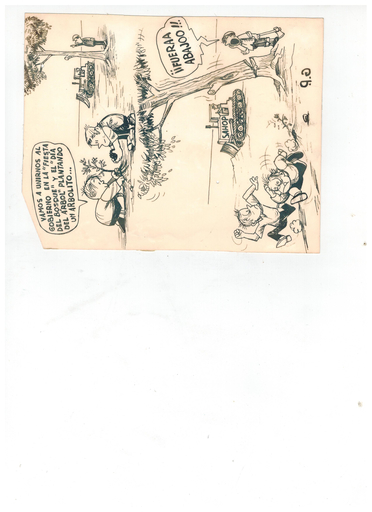 VAMOS A UNIRNOS AL
GOBIERNO EN LA "FIESTA
DEL BOSQUE" Y EL "DIA
DEL ARBOL" PLANTANDO
UN ARBOLITO...
¡¡FUERAA
ABAJOO!!
SAHOP